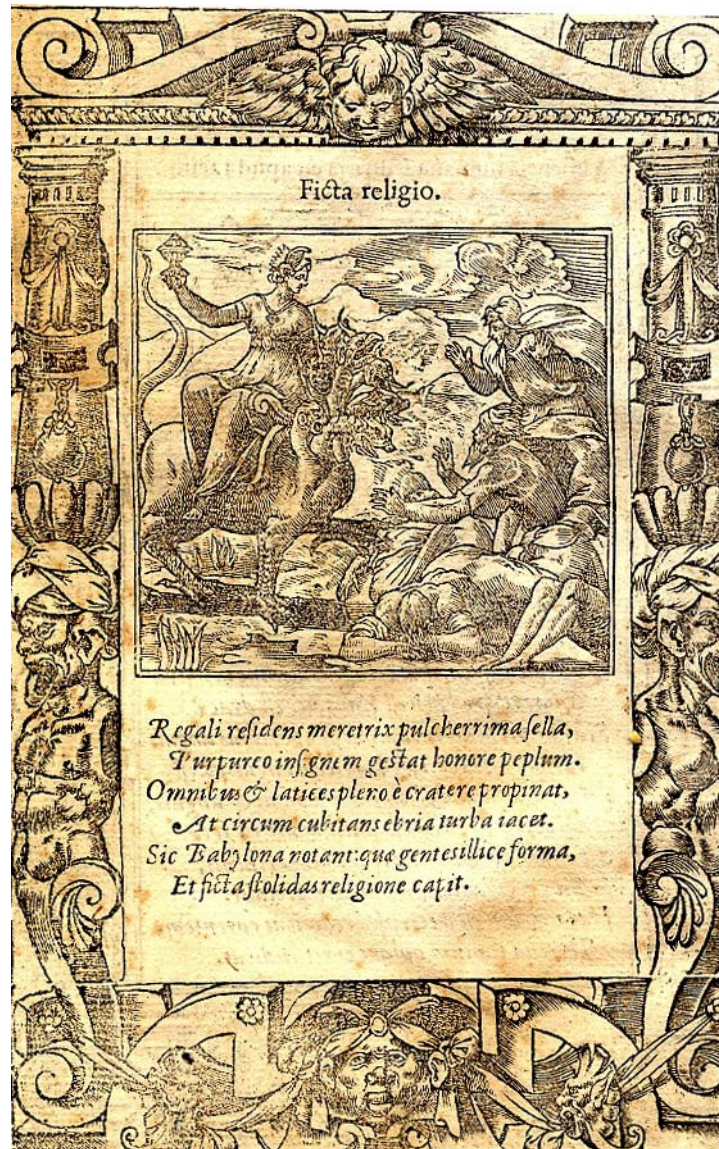 Ficta religio.
Regali residens meretrix pulcherrima sella,
Purpureo insignem gestat honore peplum.
Omnibus & latices pleno è cratere propinat,
At circum cubitans ebria turba iacet.
Sic Babylona notant: quæ gentes illice forma,
Et ficta stolidas religione capit.